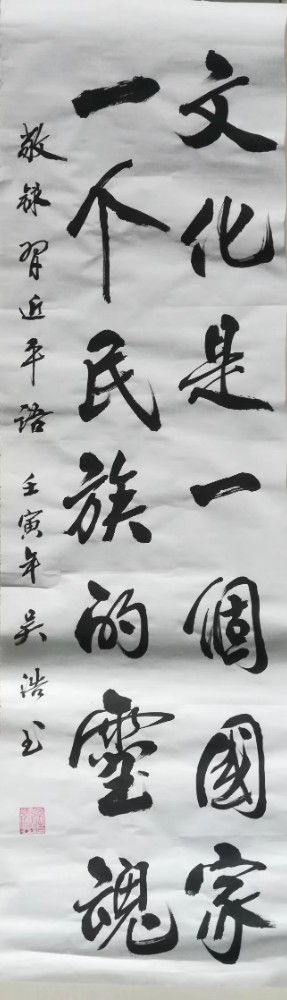 文化是一個國家
一个民族的靈魂
敬錄習近平語 壬寅年 吴浩书